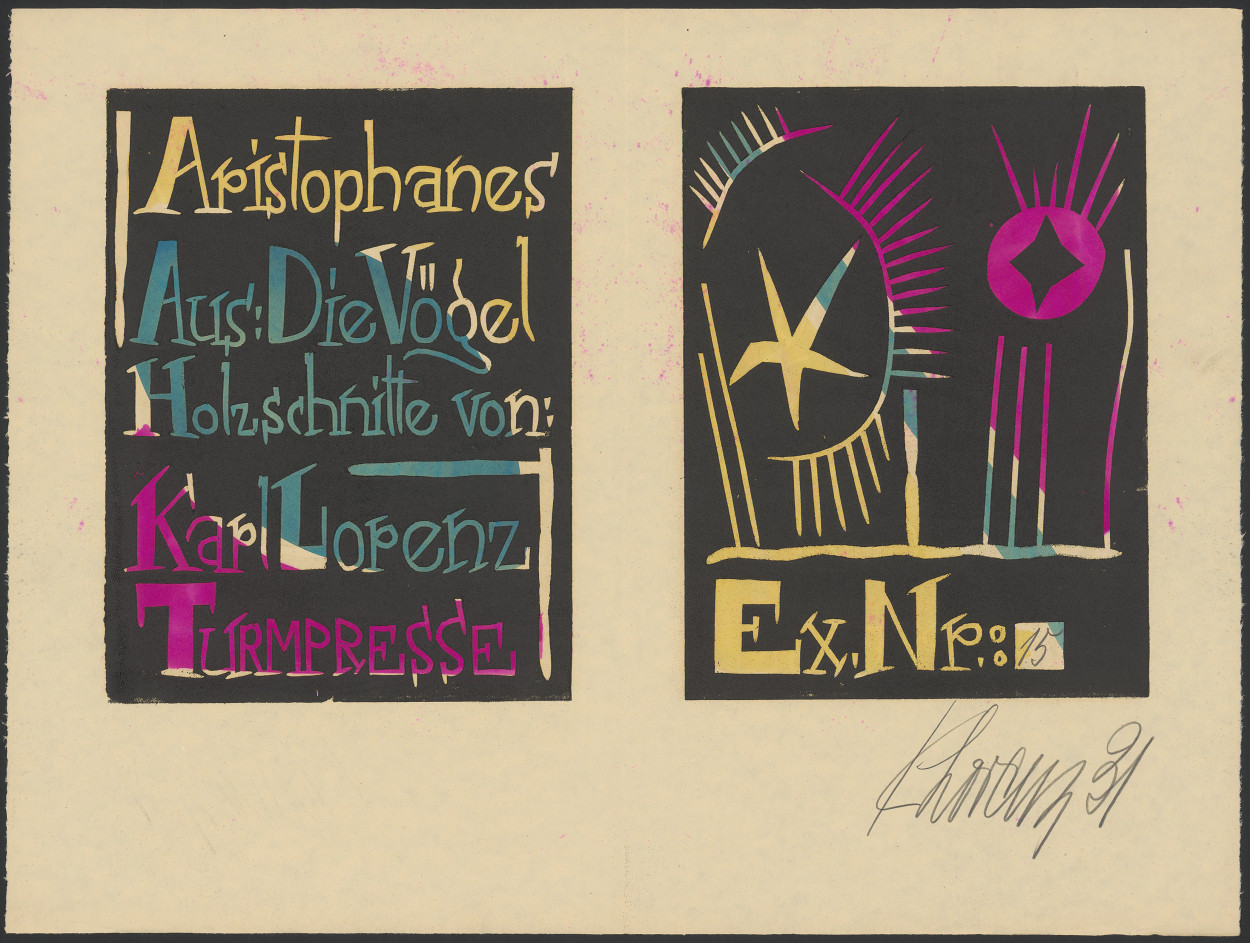 Aristophanes
Aus: Die Vögel
Holzschnitte von:
Karl Lorenz
TURMPRESSE
Ex. Nr.: 15
KLorenz 31